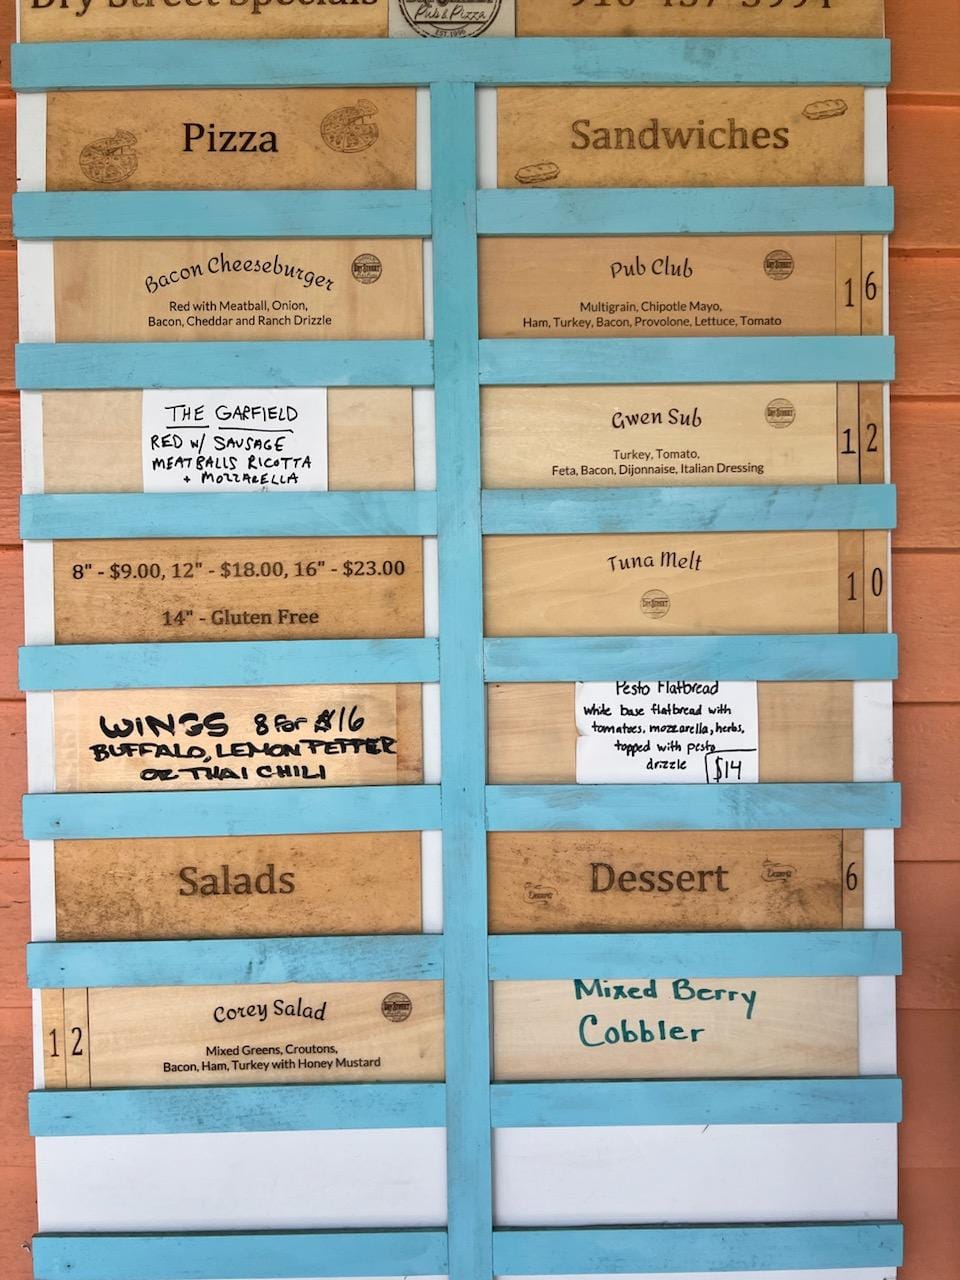 Dry Street Specials
Pub & Pizza
EST. 1996
910-457-5994
Pizza
Bacon Cheeseburger
Red with Meatball, Onion,
Bacon, Cheddar and Ranch Drizzle
THE GARFIELD
RED W/ SAUSAGE
MEATBALLS RICOTTA
+ MOZZARELLA
8" - $9.00, 12" - $18.00, 16" - $23.00
14" - Gluten Free
WINGS 8 for $16
BUFFALO, LEMON PEPPER
OR THAI CHILI
Salads
Corey Salad
12
Mixed Greens, Croutons,
Bacon, Ham, Turkey with Honey Mustard
Sandwiches
Pub Club
16
Multigrain, Chipotle Mayo,
Ham, Turkey, Bacon, Provolone, Lettuce, Tomato
Gwen Sub
12
Turkey, Tomato,
Feta, Bacon, Dijonnaise, Italian Dressing
Tuna Melt
10
DRY STREET
Pesto Flatbread
white base flatbread with
tomatoes, mozzarella, herbs,
topped with pesto
drizzle $14
Dessert 6
Mixed Berry
Cobbler